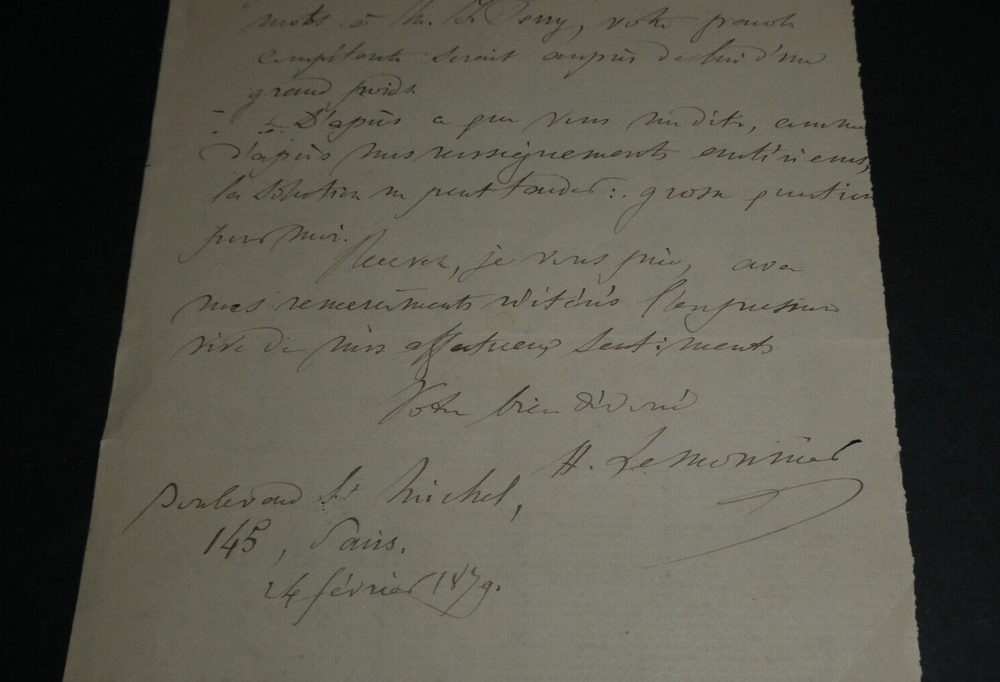 mots à M. Ferry, votre grande
compétence serait auprès de lui d'un
grand poids.
D'après ce que vous me dites, comme
d'après mes renseignements antérieurs,
la solution ne peut tarder : grosse question
pour moi.
Recevez, je vous prie, avec
mes remerciements réitérés l'expression
vive de mes affectueux sentiments
Votre bien dévoué
H. Lemonnier
Boulevard St Michel,
145, Paris.
24 février 1879.